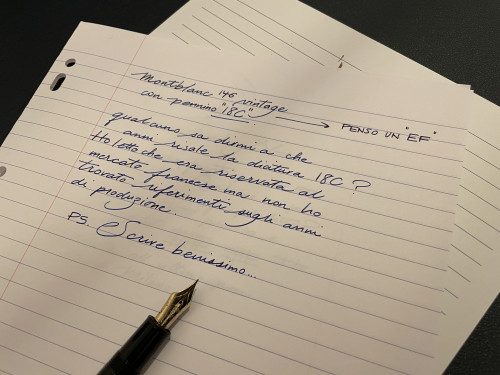 Montblanc 146 vintage
con pennino "18C" → PENSO UN "EF"
qualcuno sa dirmi a che
anni risale la dicitura 18C ?
Ho letto che era riservata al
mercato francese ma non ho
trovato riferimenti sugli anni
di produzione.
PS. Scrive benissimo...